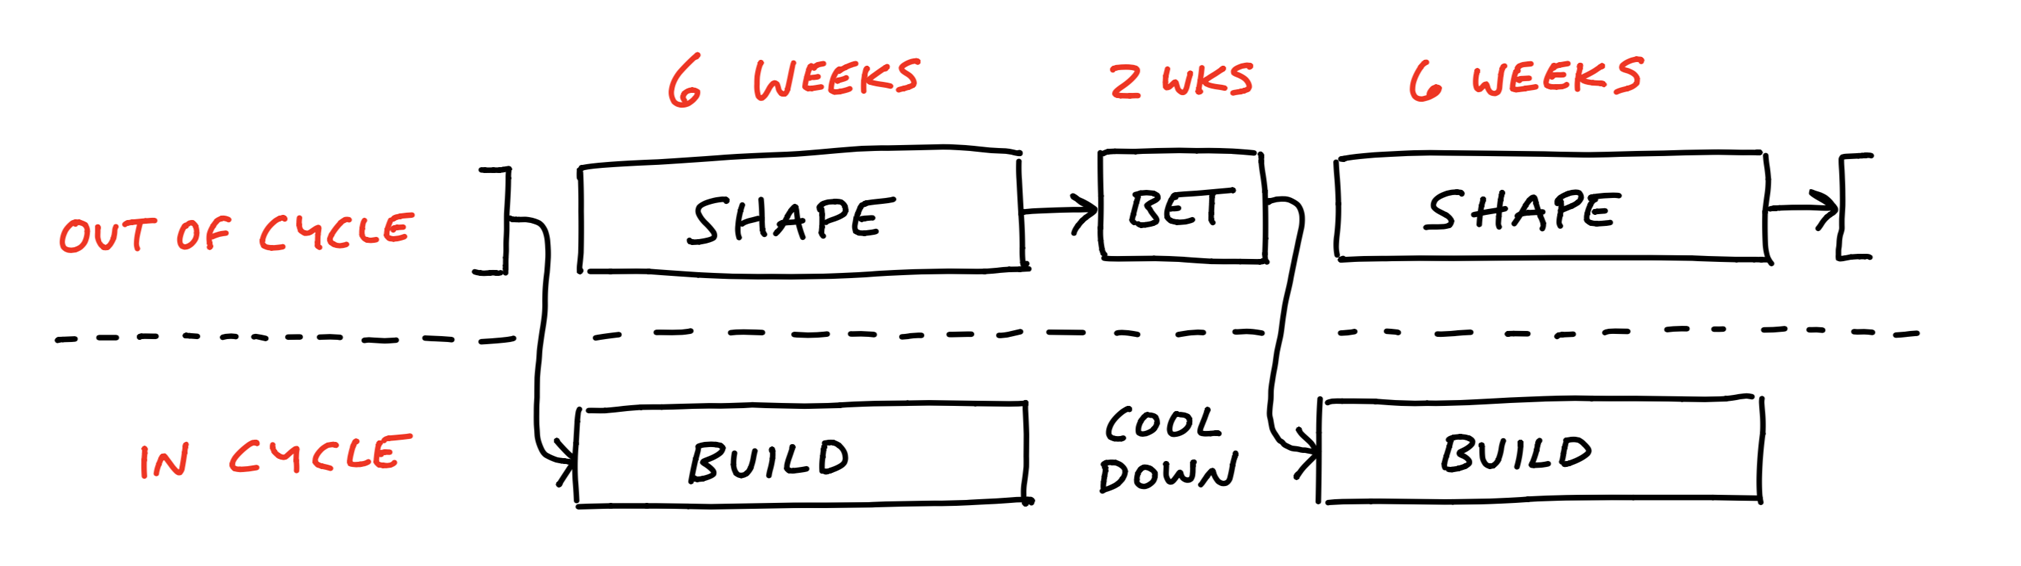 6 WEEKS 2 WKS 6 WEEKS
OUT OF CYCLE SHAPE BET SHAPE
IN CYCLE BUILD COOL DOWN BUILD